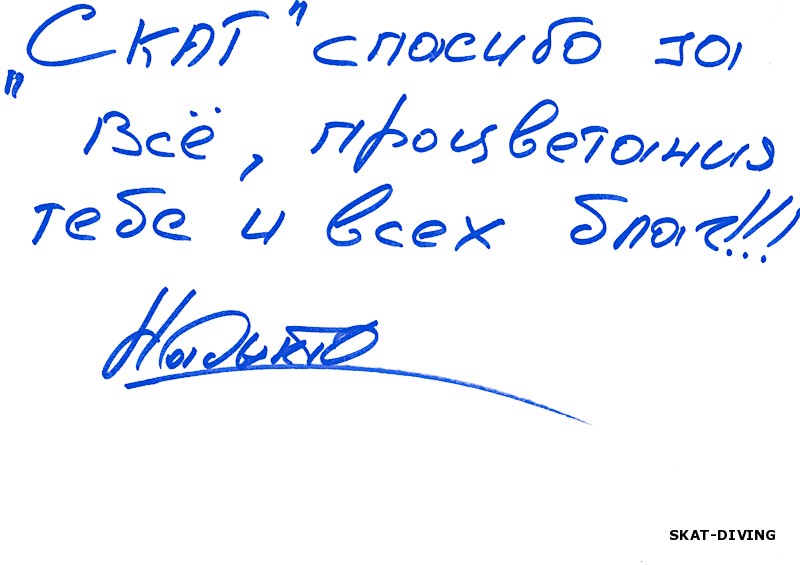 "СКАТ" спасибо за
всё, процветания
тебе и всех благ!!!
SKAT-DIVING